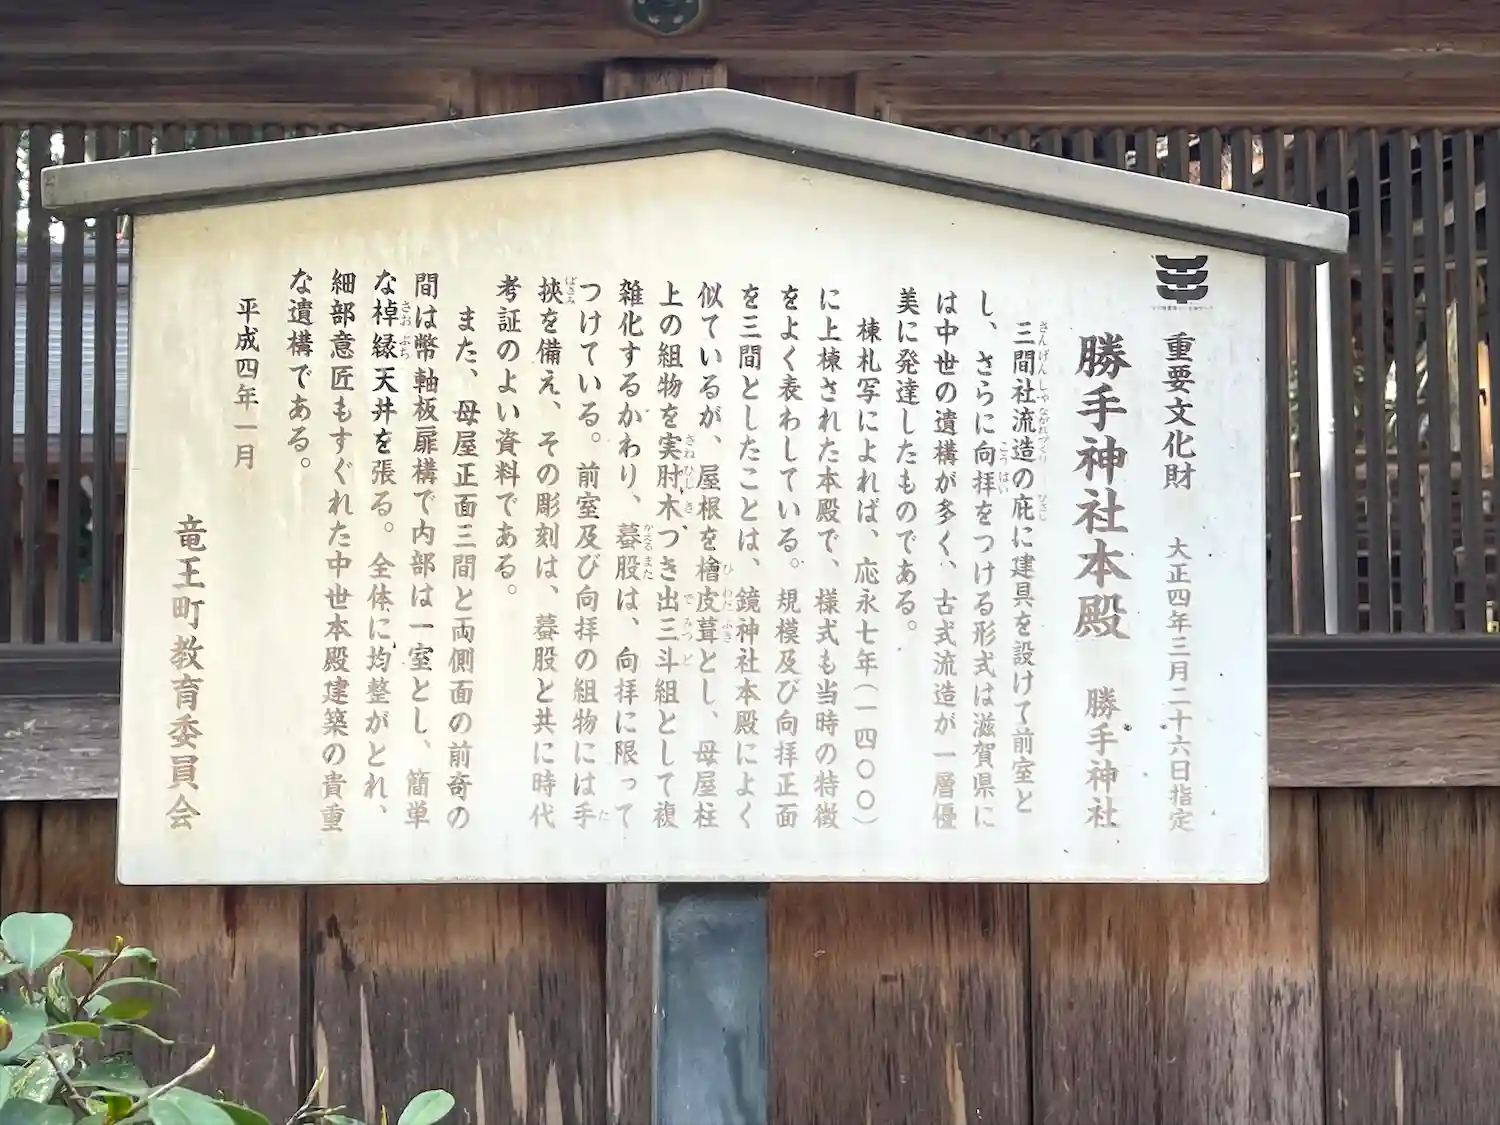 重要文化財 大正四年三月二十六日指定
勝手神社本殿 勝手神社
三間社流造の庇に建具を設けて前室と
さんげんしゃながれづくり ひさし
し、さらに向拝をつける形式は滋賀県に
こうはい
は中世の遺構が多く、古式流造が一層優
美に発達したものである。
棟札写によれば、応永七年(一四〇〇)
に上棟された本殿で、様式も当時の特徴
をよく表わしている。規模及び向拝正面
を三間としたことは、鏡神社本殿によく
似ているが、屋根を檜皮葺とし、母屋柱
ひわだぶき
上の組物を実肘木つき出三斗組として複
さねひじき でみつど
雑化するかわり、蟇股は、向拝に限って
かえるまた
つけている。前室及び向拝の組物には手
た
挾を備え、その彫刻は、蟇股と共に時代
ばさみ
考証のよい資料である。
また、母屋正面三間と両側面の前奇の
間は幣軸板扉構で内部は一室とし、簡単
な棹縁天井を張る。全体に均整がとれ、
さおぶち
細部意匠もすぐれた中世本殿建築の貴重
な遺構である。
平成四年一月
竜王町教育委員会